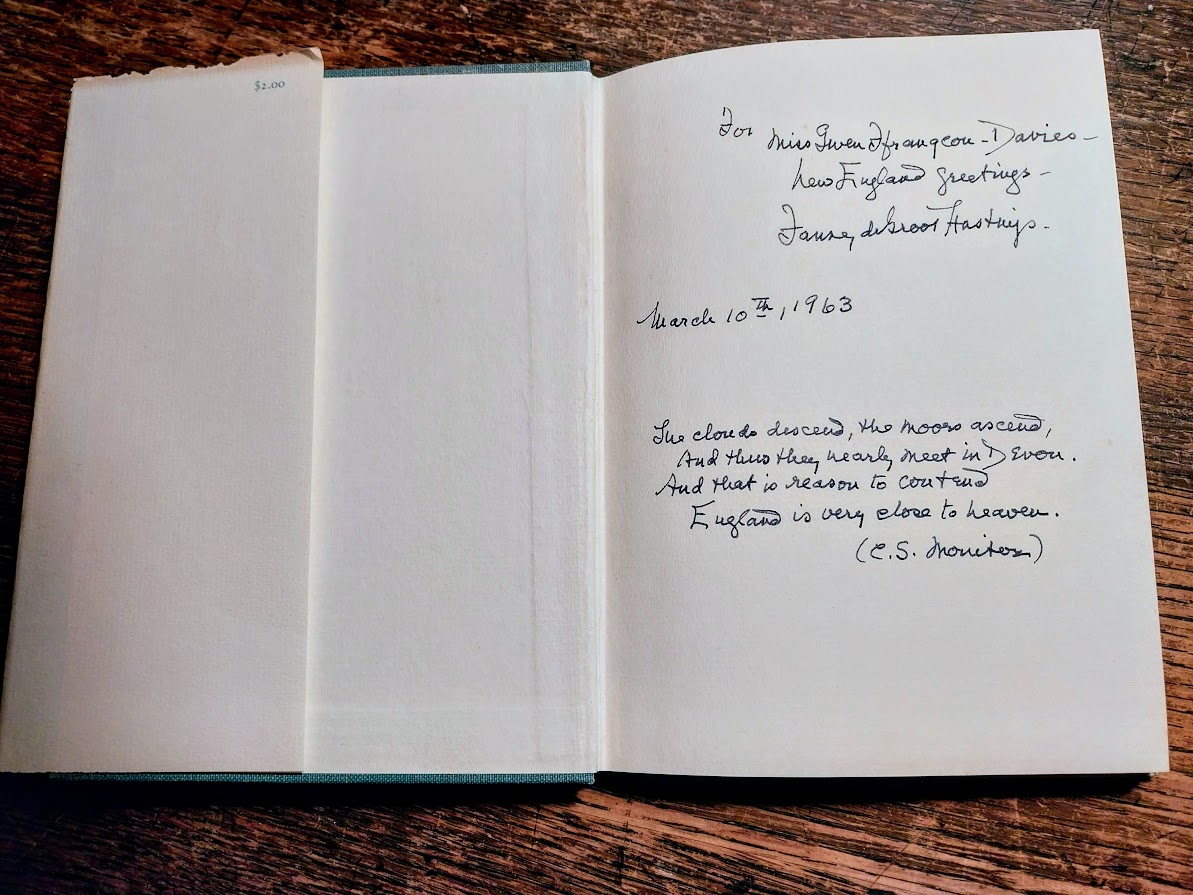 $2.00
For
Miss Gwen Ffrangcon-Davies-
New England greetings-
Fanny de Groot Hastings.
March 10th, 1963
The clouds descend, the moors ascend,
And thus they nearly meet in Devon.
And that is reason to contend
England is very close to heaven.
(C.S. Monitor)